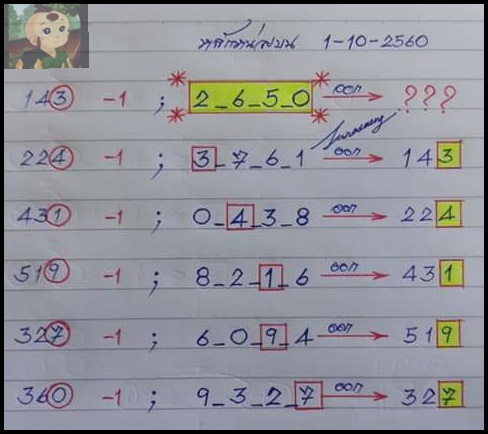 หลักหน่วยบน 1-10-2560
143 -1 ; * 2_6_5_0 * ออก → ???
224 -1 ; 3_7_6_1 ออก → 143
431 -1 ; 0_4_3_8 ออก → 224
519 -1 ; 8_2_1_6 ออก → 431
327 -1 ; 6_0_9_4 ออก → 519
360 -1 ; 9_3_2_7 ออก → 327